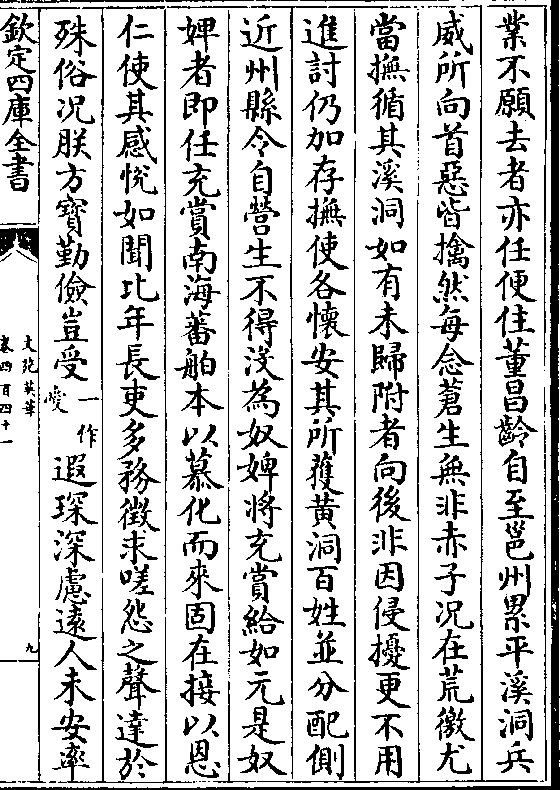 業不願去者亦任便住董昌齡自至邕州累平溪洞兵
威所向首惡皆擒然每念蒼生無非赤子况在荒徼尤
當撫循其溪洞如有未歸附者向後非因侵擾更不用
進討仍加存撫使各懷安其所獲黄洞百姓並分配側
近州縣令自營生不得没為奴婢將充賞給如元是奴
婢者即任充賞南海蕃舶本以慕化而來固在接以恩
仁使其感悅如聞比年長吏多務徵求嗟怨之聲達於
殊俗况朕方寶勤儉豈受一作愛遐琛深慮遠人未安率
欽定四庫全書
文苑英華
卷四百四十一
九